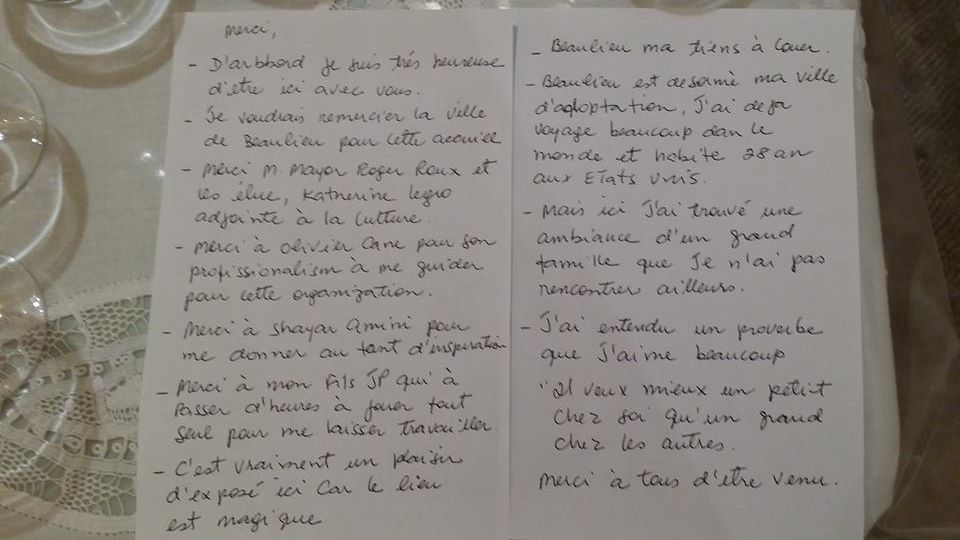 merci,
- D'arbbord je suis très heureuse
d'être ici avec vous.
- Je voudrais remercier la ville
de Beaulieu pour cette accuille
- Merci M. Mayor Roger Roux et
les élue, Katherine legro
adjointe à la culture.
- merci à olivier Cane pour son
profissionalism à me guider
pour cette organization.
- Merci à Shayar Amini pour
me donner au tant d'inspiration
- Merci à mon Fils JP qui à
Passer d'heures à jouer tout
seul pour me laisser travailler.
- C'est vraiment un plaisir
d'exposé ici Car le lieu
est magique
- Beaulieu ma tiens à Cœur.
- Beaulieu est desormè ma ville
d'adoptation, J'ai deja
voyage beaucoup dan le
monde et habite 28 an
aux Etats Unis.
- Mais ici J'ai trouvé une
ambiance d'un grand
famille que Je n'ai pas
rencontrer ailleurs.
- J'ai entendu un proverbe
que J'aime beaucoup
"Il veux mieux un petit
chez soi qu'un grand
chez les autres.
merci à tous d'être venu.